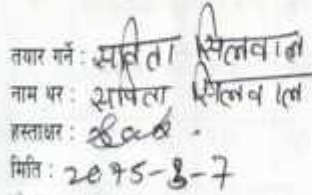 तयार गर्ने : सविता सिलवाल
नाम थर : सविता सिलवाल
हस्ताक्षर :
मिति : 2075-8-7